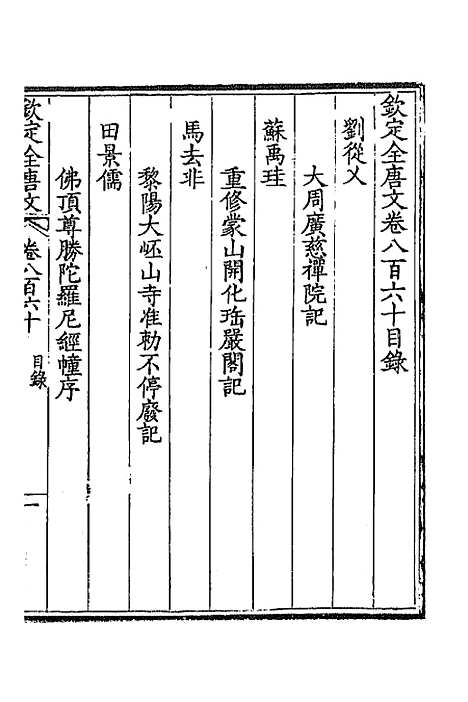 欽定全唐文卷八百六十目錄
劉從乂
大周廣慈禪院記
蘇禹珪
重修蒙山開化莊嚴閣記
馬去非
黎陽大岯山寺准勅不停廢記
田景儒
佛頂尊勝陀羅尼經幢序
欽定全唐文
卷八百六十
目錄
一